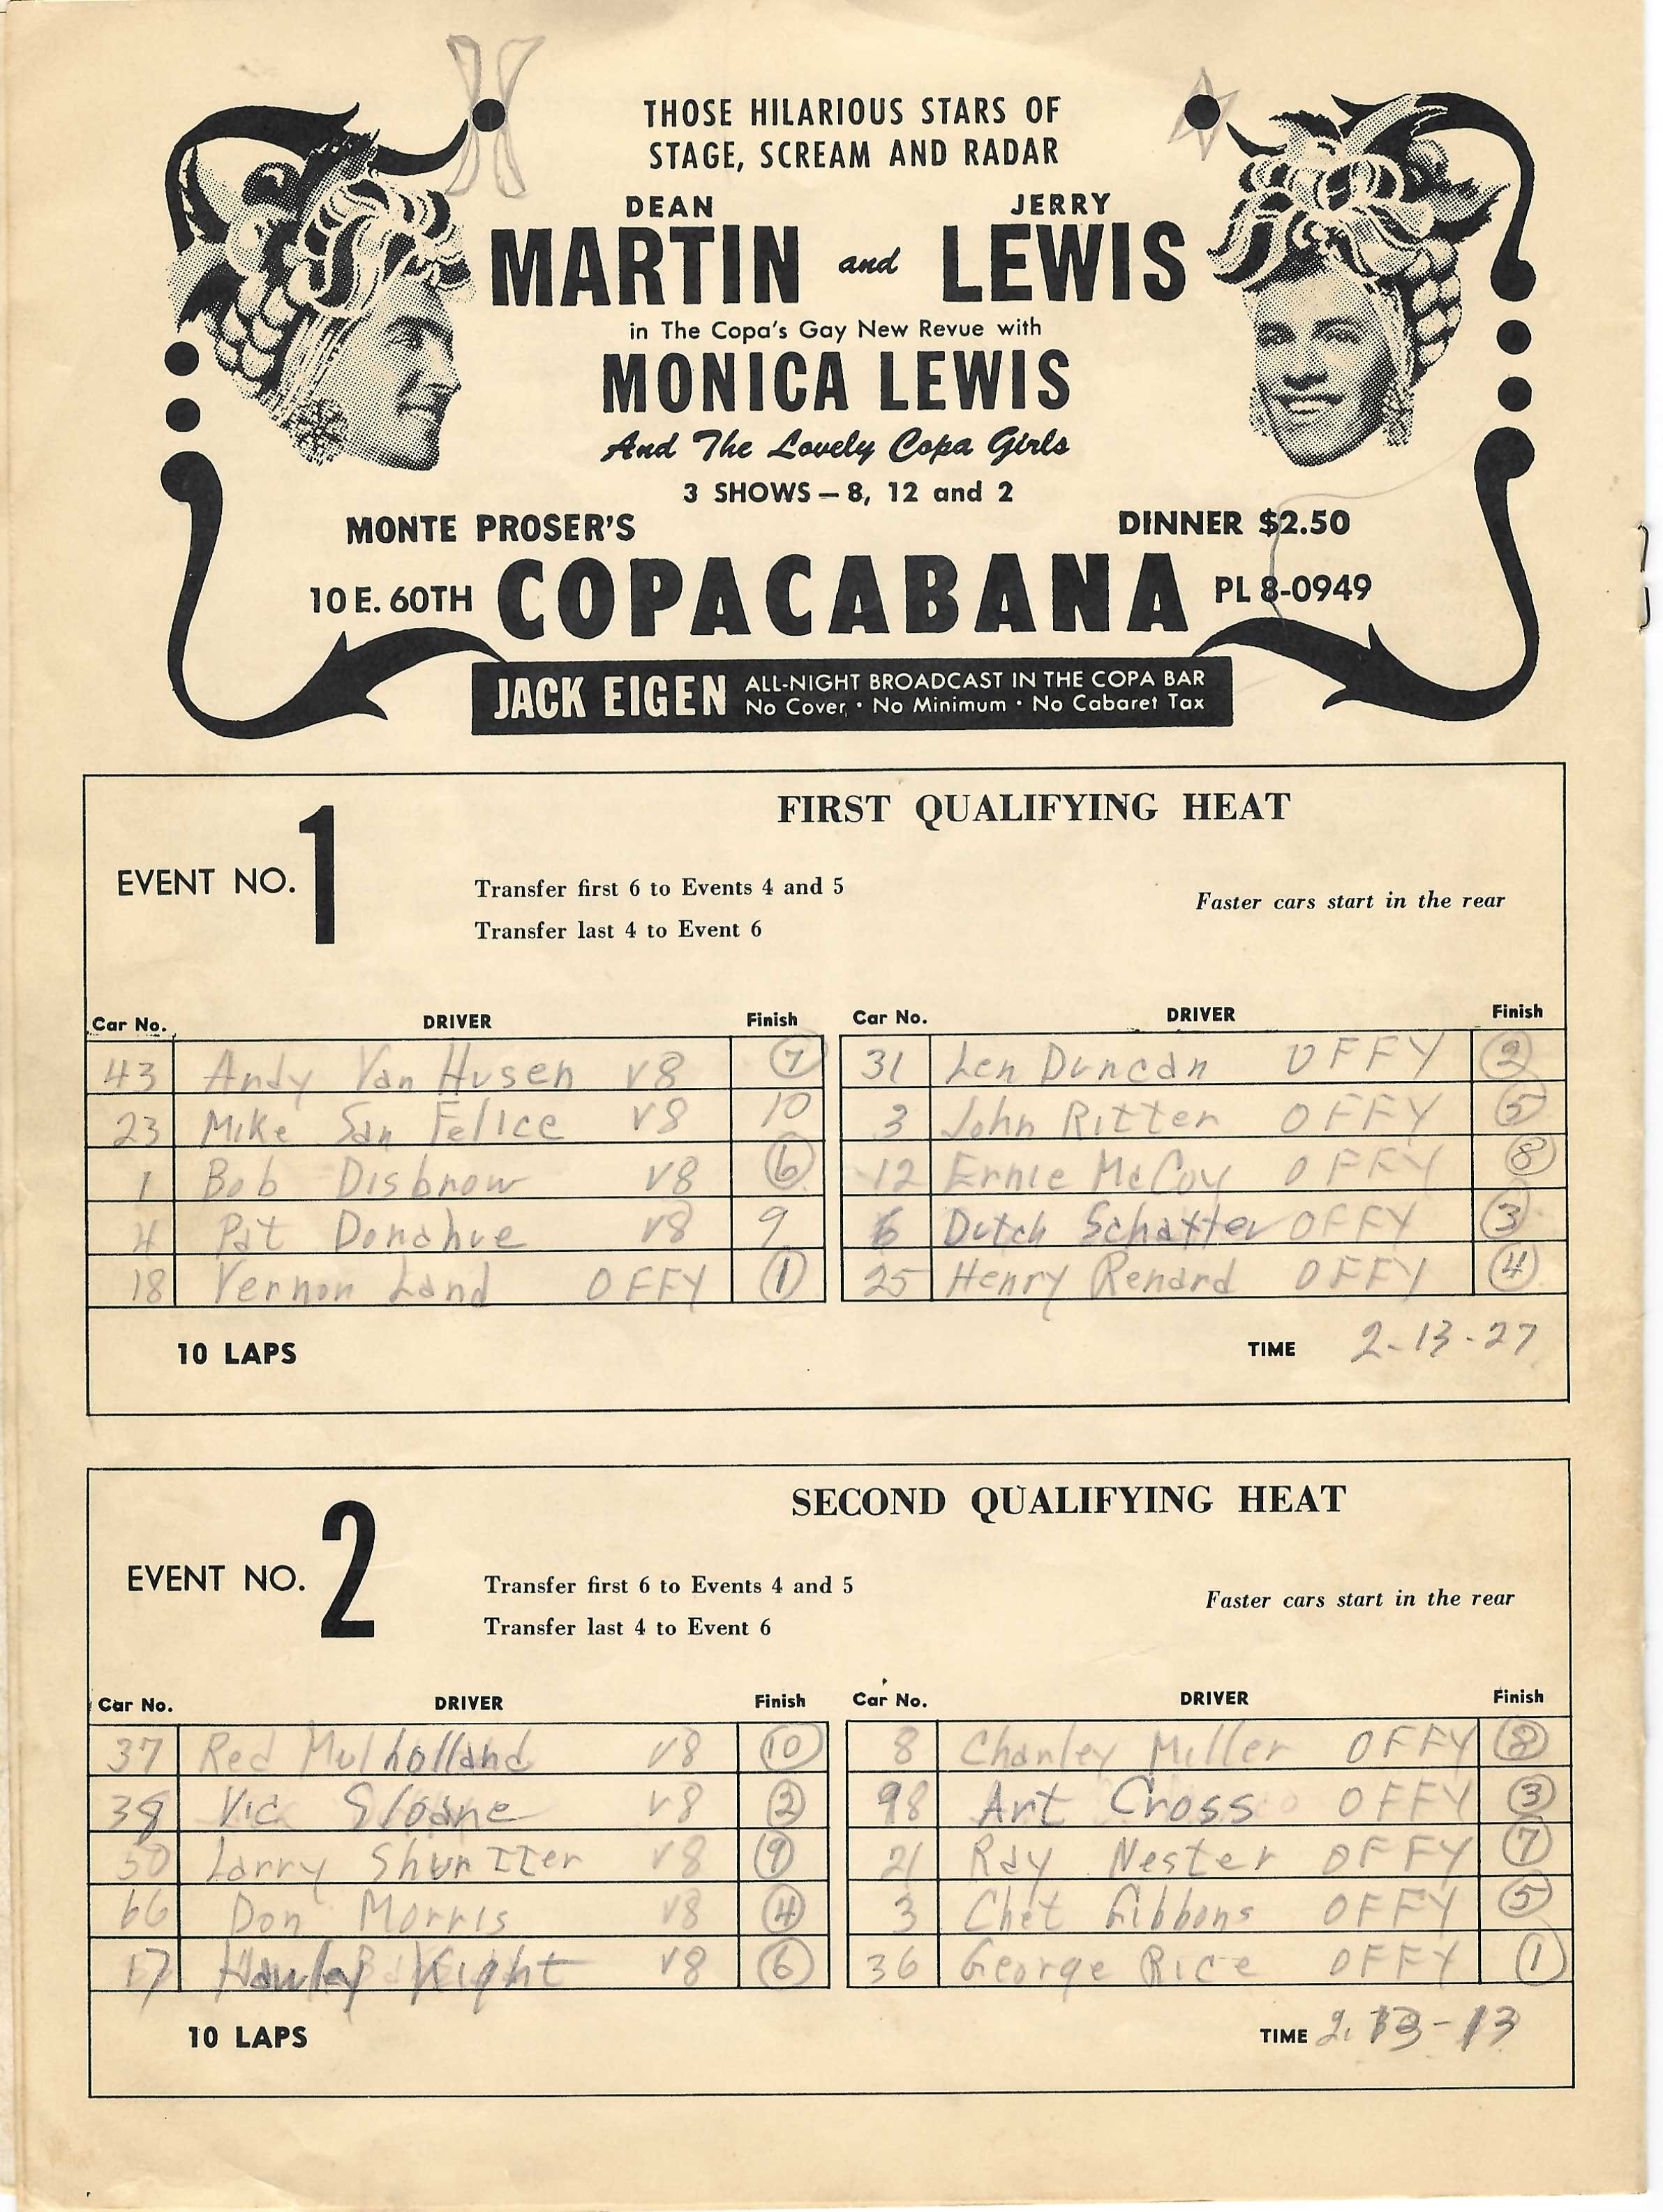 THOSE HILARIOUS STARS OF
STAGE, SCREAM AND RADAR
DEAN JERRY
MARTIN and LEWIS
in The Copa's Gay New Revue with
MONICA LEWIS
And The Lovely Copa Girls
3 SHOWS – 8, 12 and 2
MONTE PROSER'S DINNER $2.50
10 E. 60TH COPACABANA PL 8-0949
JACK EIGEN ALL-NIGHT BROADCAST IN THE COPA BAR
No Cover • No Minimum • No Cabaret Tax
FIRST QUALIFYING HEAT
EVENT NO. 1
Transfer first 6 to Events 4 and 5
Faster cars start in the rear
Transfer last 4 to Event 6
Car No. DRIVER Finish Car No. DRIVER Finish
43 Andy Van Husen V8 7 31 Len Duncan OFFY 2
23 Mike San Felice V8 10 3 John Ritter OFFY 5
1 Bob Disbrow V8 6 12 Ernie McCoy OFFY 8
4 Pat Donahue V8 9 6 Dutch Schaffer OFFY 3
18 Vernon Land OFFY 1 25 Henry Renard OFFY 4
10 LAPS TIME 2-13-27
SECOND QUALIFYING HEAT
EVENT NO. 2
Transfer first 6 to Events 4 and 5
Faster cars start in the rear
Transfer last 4 to Event 6
Car No. DRIVER Finish Car No. DRIVER Finish
37 Red Mulholland V8 10 8 Charley Miller OFFY 8
38 Vic Sloane V8 2 98 Art Cross OFFY 3
50 Larry V8 9 21 Ray Nester OFFY 7
66 Don Morris V8 4 3 Chet Gibbons OFFY 5
17 V8 6 36 George Rice OFFY 1
10 LAPS TIME